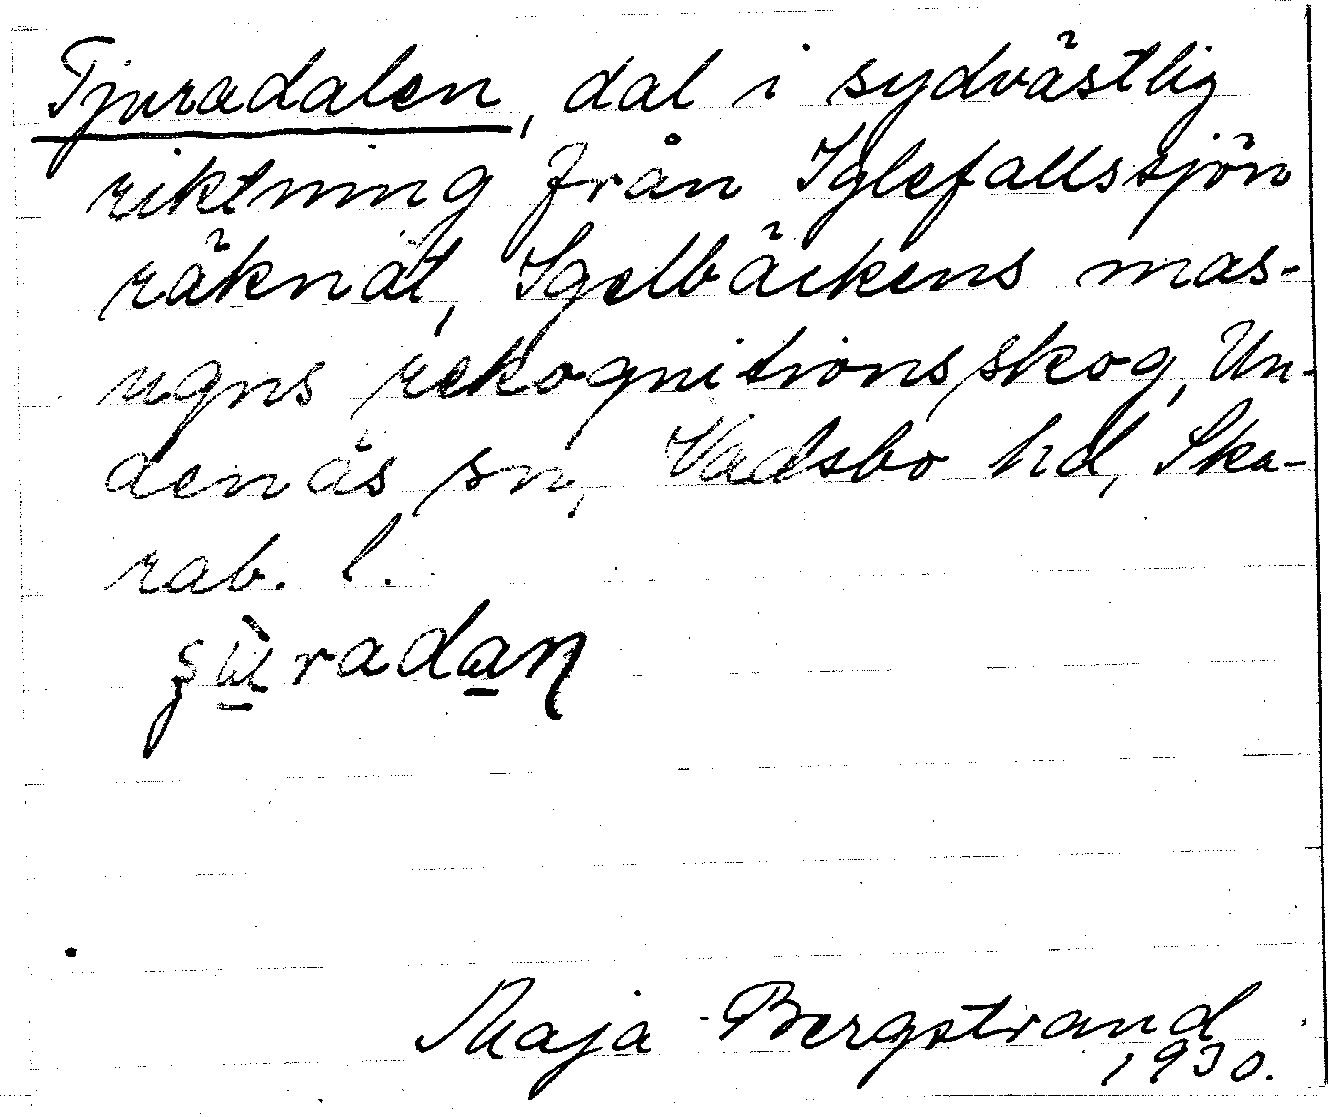 Tjuradalen, dal i sydvästlig
riktning från Iglefallssjön
räknat, Igelbäckens mas-
ugns rekognitionsskog, Un-
denäs sn, Vadsbo hd, Ska-
rab. l.
Maja Bergstrand
1930.